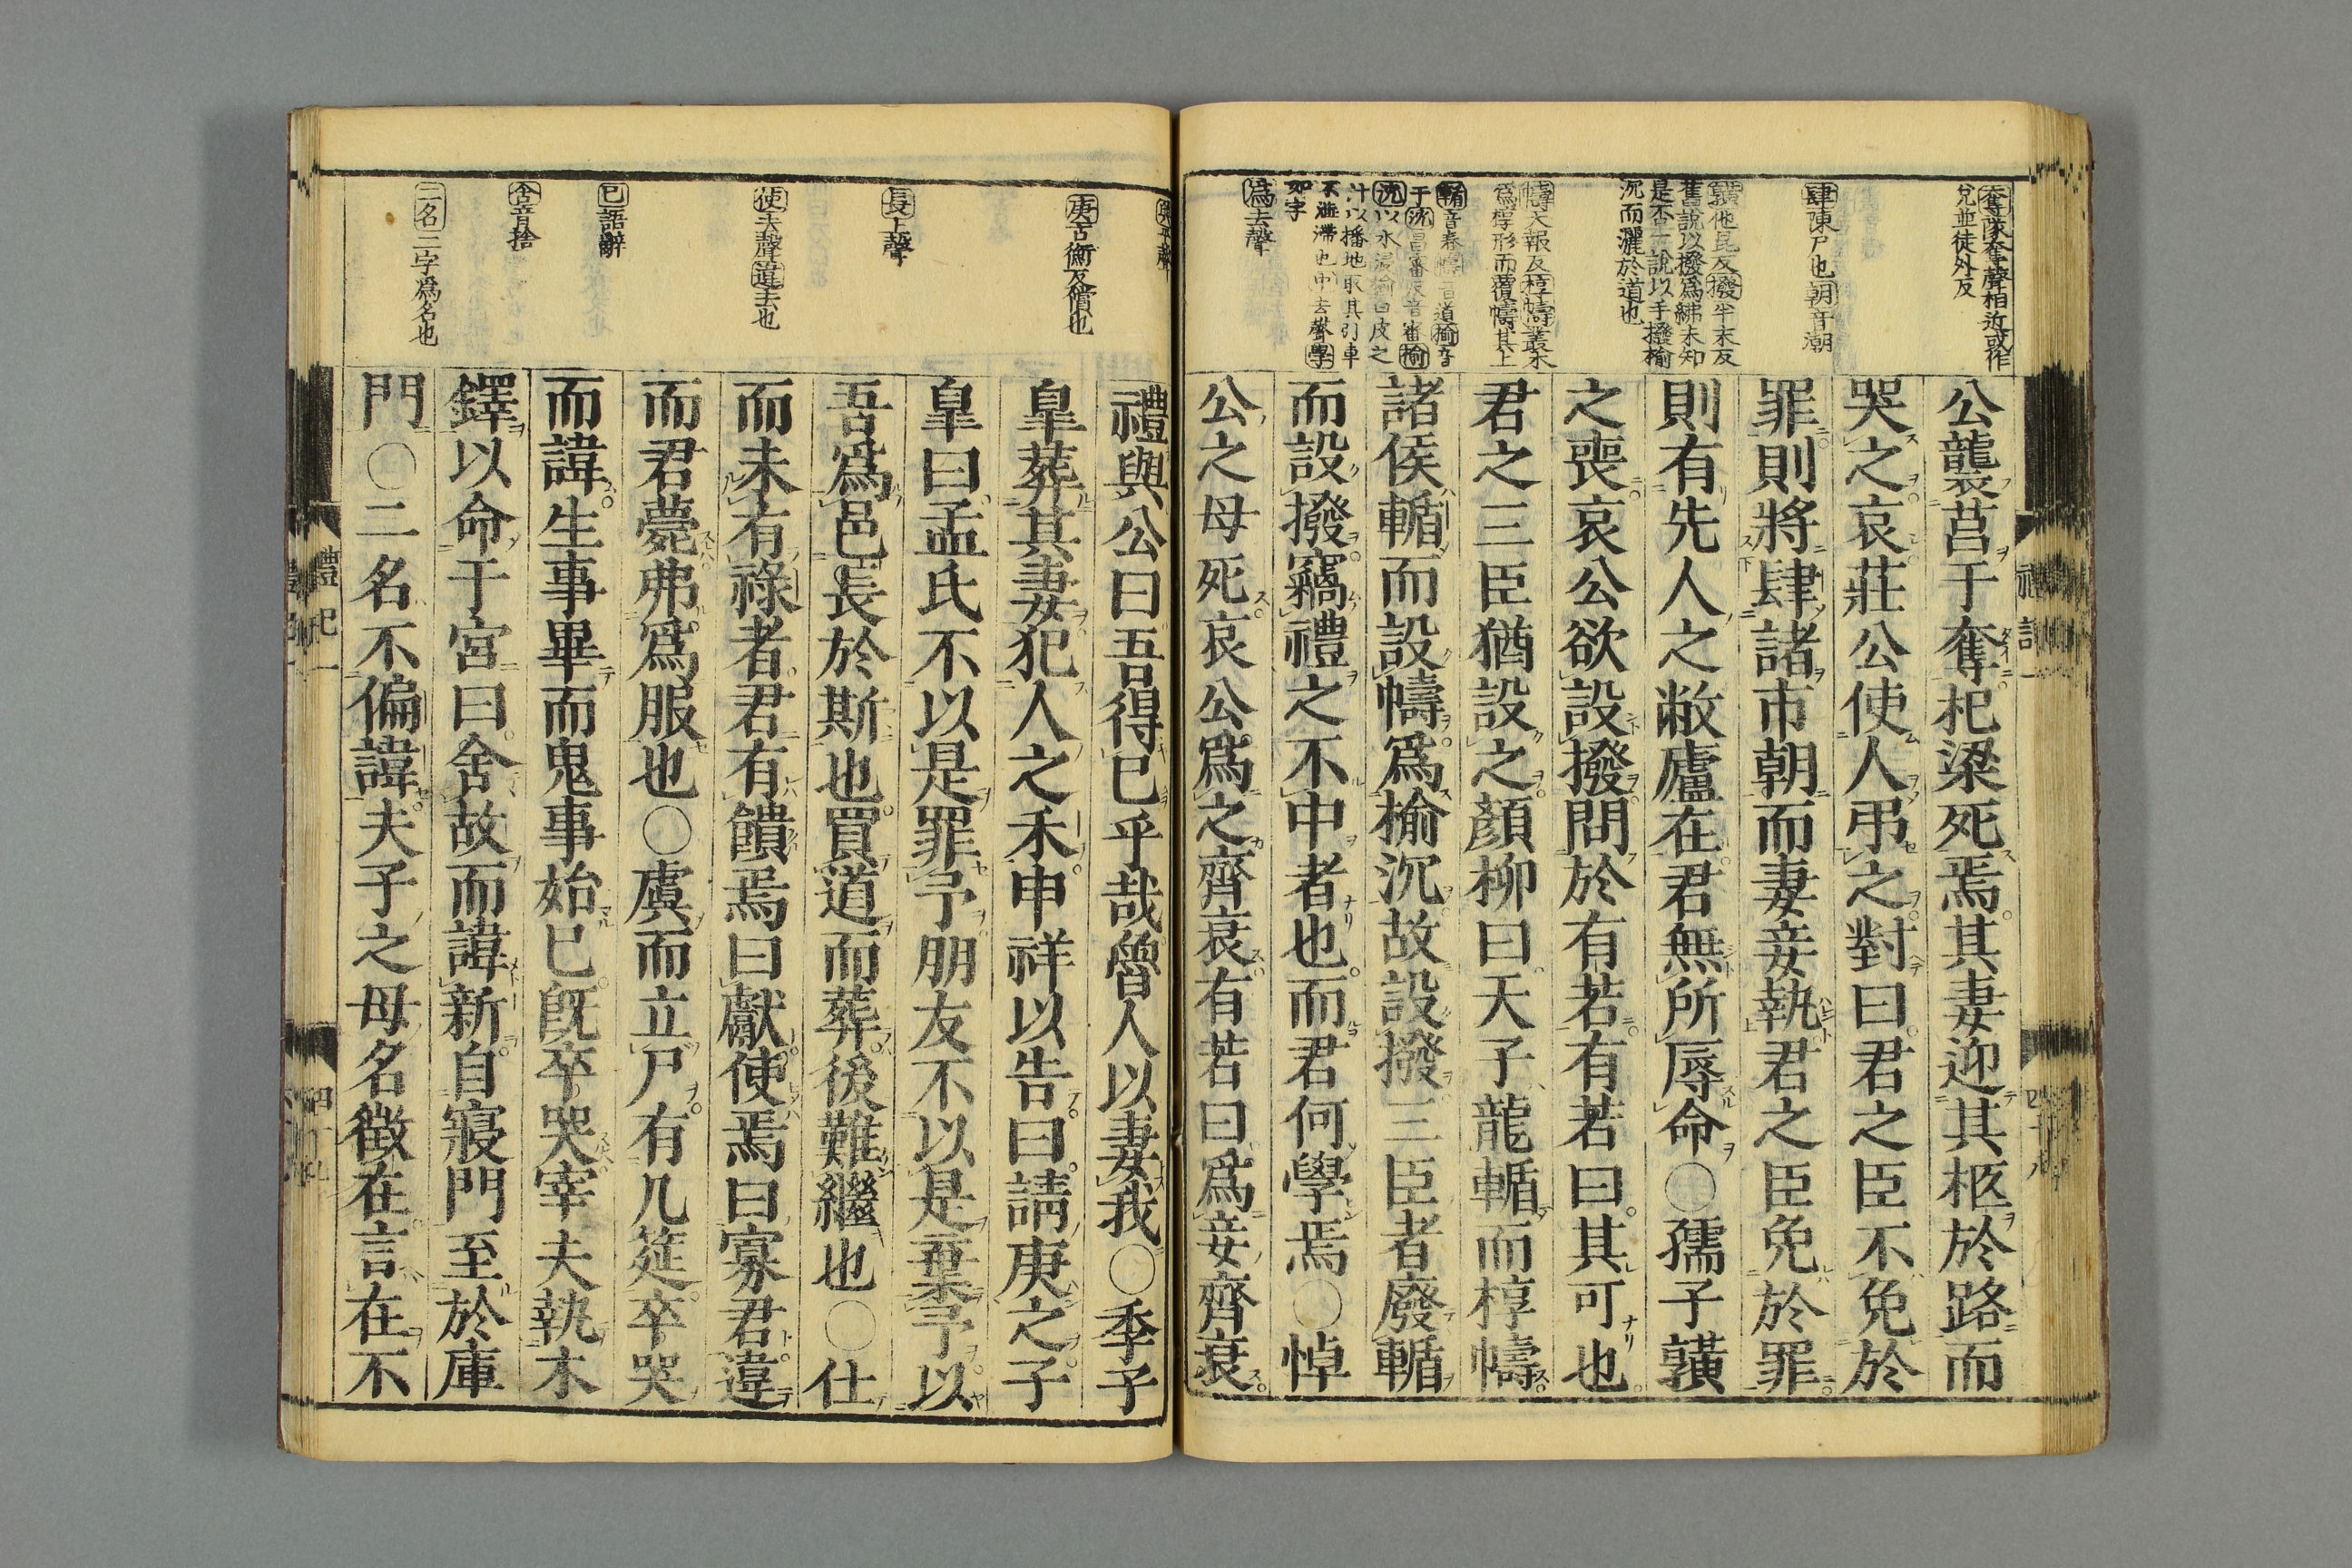 奪隊奪聲相近或作
兌並徒外反
肆陳尸也朝音潮
䵍他昆反撥半末反
舊說以撥爲紼未知
是否一說以手撥榆
沉而灑於道也
幬大報反椁幬叢木
爲椁形而覆幬其上
輴音春幬音道榆音
于沈昌審反音審榆
沈以水浸榆白皮之
汁以播地取其引車
不澁滯也中去聲學
如字
爲去聲
公襲莒于奪杞梁死焉其妻迎其柩於路而
哭之哀莊公使人弔之對曰君之臣不免於
罪則將肆諸市朝而妻妾執君之臣免於罪
則有先人之敝廬在君無所辱命○孺子䵍
之喪哀公欲設撥問於有若有若曰其可也
君之三臣猶設之顏柳曰天子龍輴而椁幬
諸侯輴而設幬爲榆沉故設撥三臣者廢輴
而設撥竊禮之不中者也而君何學焉○悼
公之母死哀公爲之齊衰有若曰爲妾齊衰
與平聲
庚古衡反償也
長上聲
使去聲違去也
已語辭
舍音捨
二名二字爲名也
禮與公曰吾得已乎哉魯人以妻我○季子
皐葬其妻犯人之禾申祥以告曰請庚之子
皐曰孟氏不以是罪予朋友不以是棄予以
吾爲邑長於斯也買道而葬後難繼也○仕
而未有祿者君有饋焉曰獻使焉曰寡君違
而君薨弗爲服也○虞而立尸有几筵卒哭
而諱生事畢而鬼事始已旣卒哭宰夫執木
鐸以命于宮曰舍故而諱新自寢門至於庫
門○二名不偏諱夫子之母名徵在言在不
禮記一